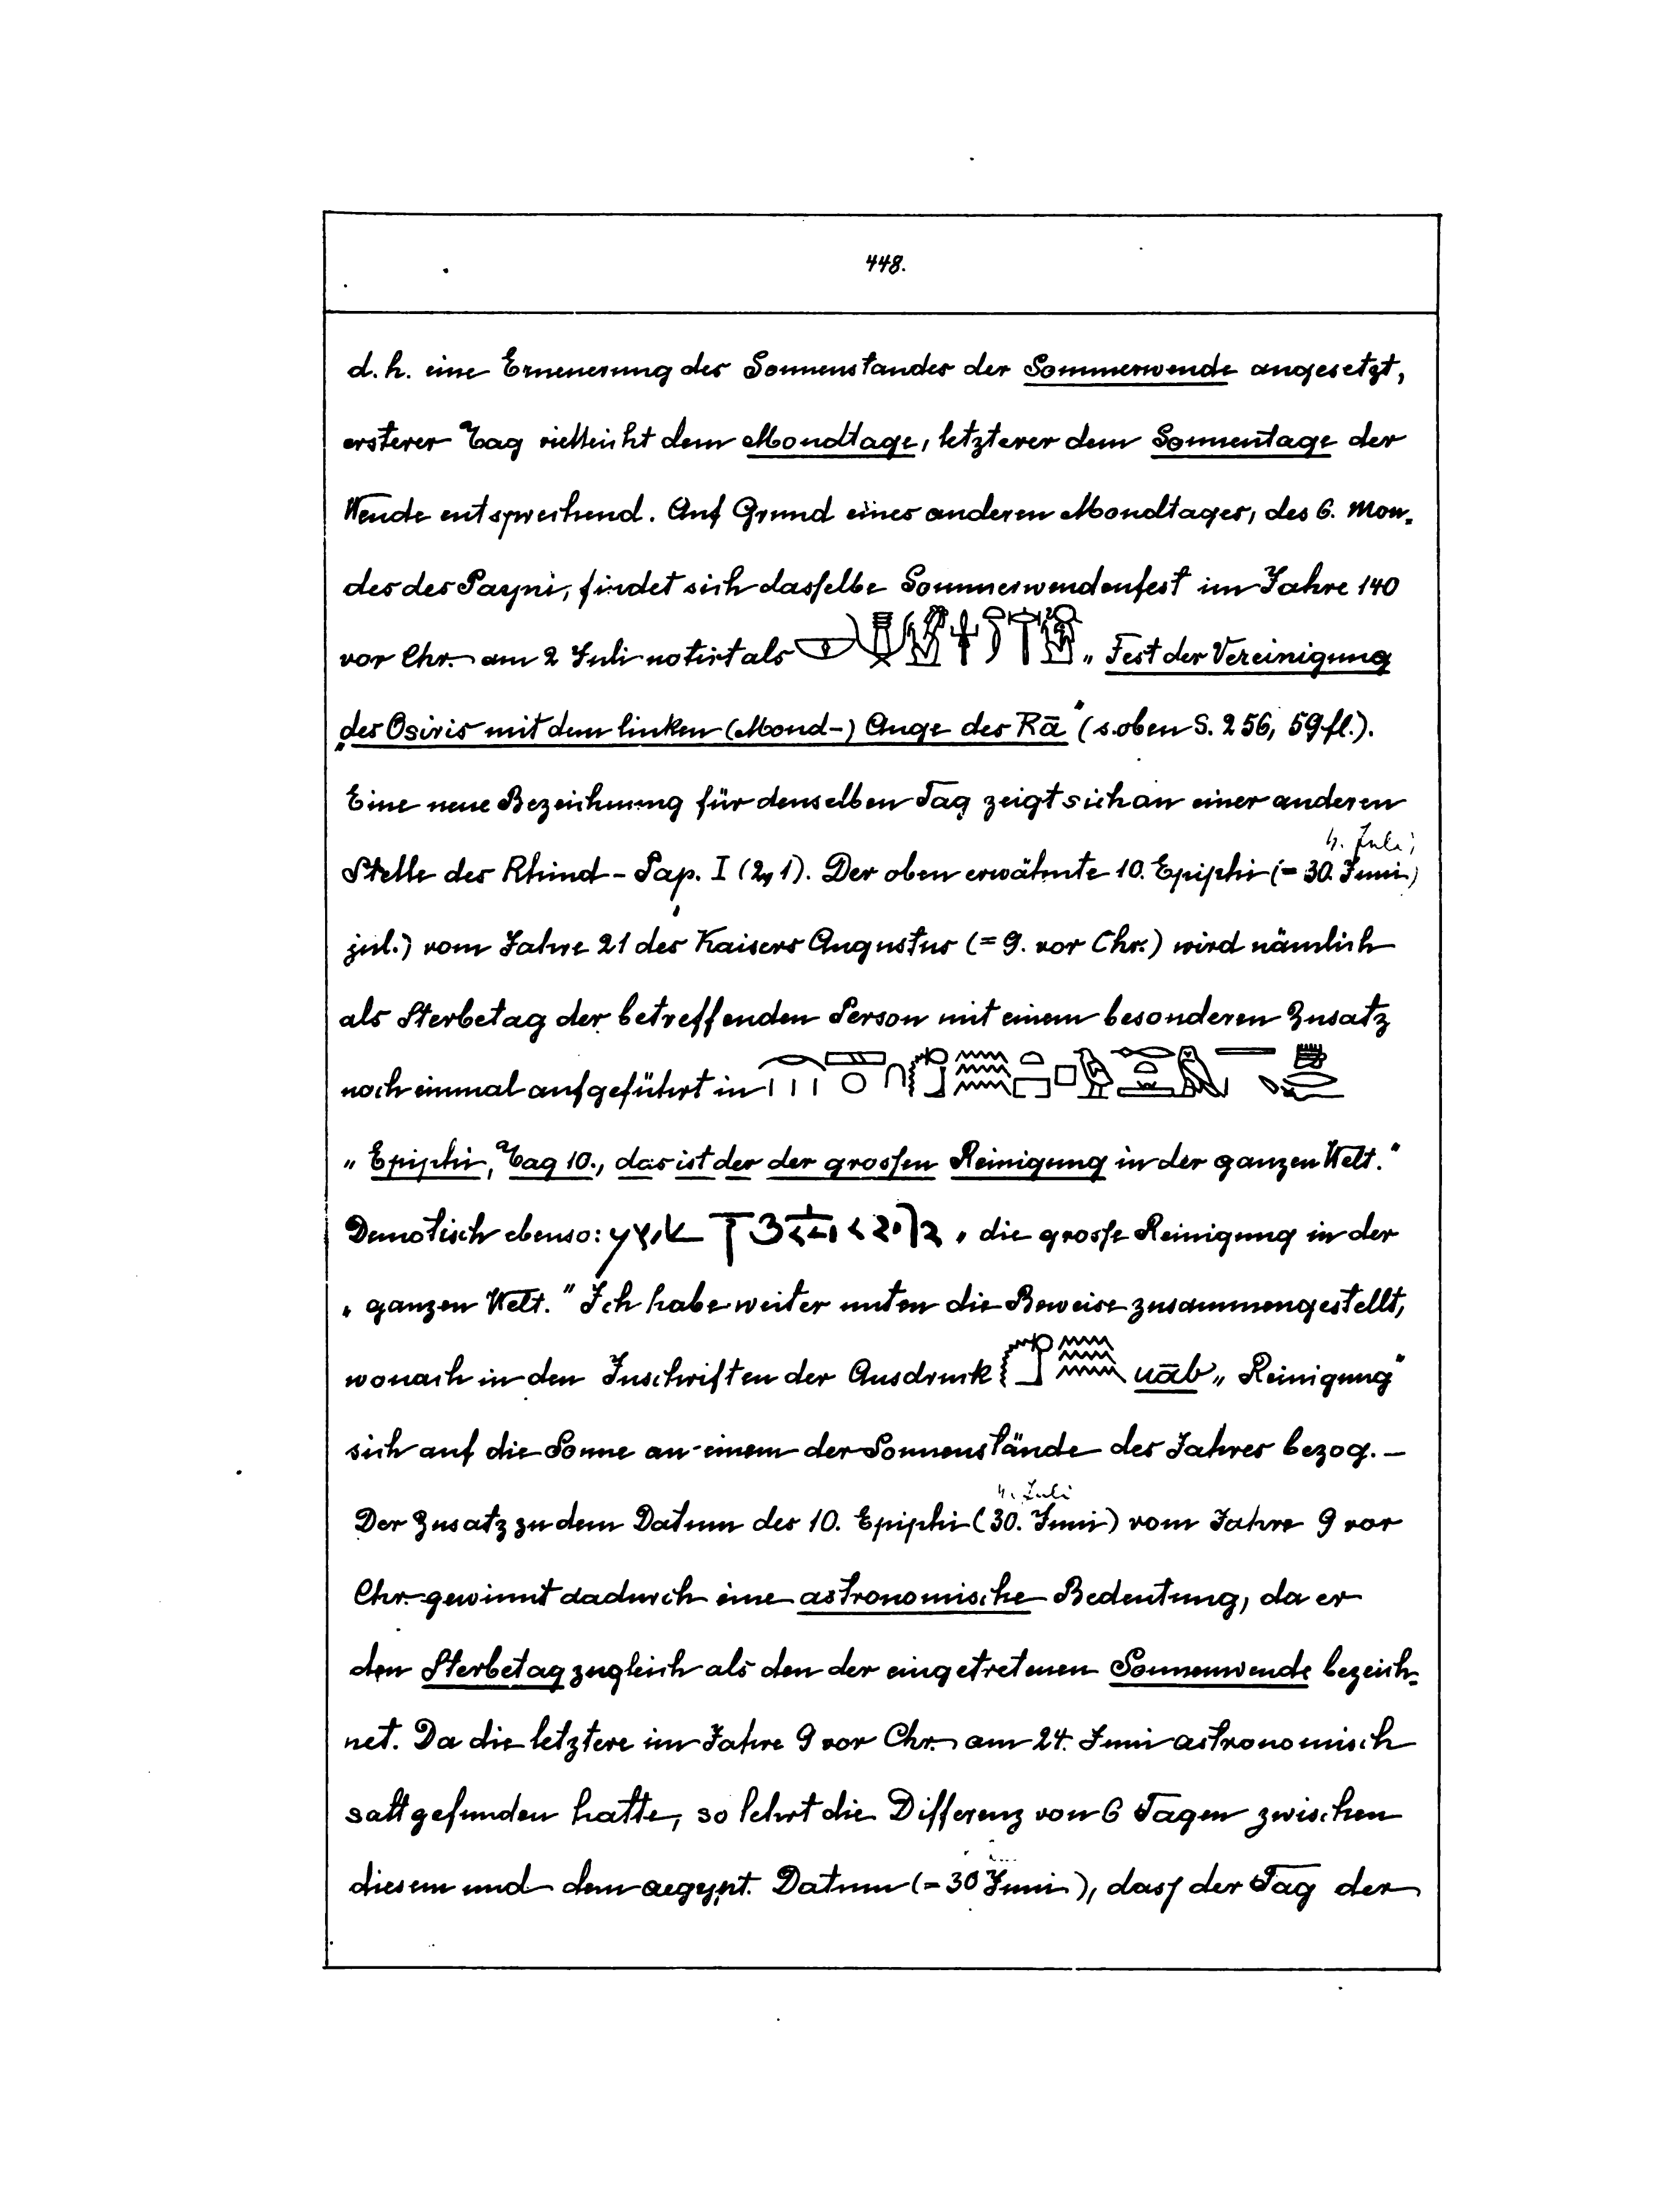 448.
d. h. eine Erneuerung des Sonnenstandes der Sommerwende angesetzt,
ersterer Tag vielleicht dem Mondtage, letzterer dem Sonnentage der
Wende entsprechend. Auf Grund eines anderen Mondtages, des 6. Mon-
des des Payni, findet sich dasselbe Sommerwendenfest im Jahre 140
vor Chr. am 2 Juli notirt als „Fest der Vereinigung
„des Osiris mit dem linken (Mond-) Auge des Rā“ (s. oben S. 256, 59 fl.).
Eine neue Bezeichnung für denselben Tag zeigt sich an einer anderen
4. Juli
Stelle des Rhind-Pap. I (2, 1). Der oben erwähnte 10. Epiphi (= 30. Juni)
jul.) vom Jahre 21 des Kaisers Augustus (= 9. vor Chr.) wird nämlich
als Sterbetag der betreffenden Person mit einem besonderen Zusatz
noch einmal aufgeführt in
„Epiphi, Tag 10., das ist der der grossen Reinigung in der ganzen Welt.“
Demotisch ebenso: „die grosse Reinigung in der
„ganzen Welt.“ Ich habe weiter unten die Beweise zusammengestellt,
wonach in den Inschriften der Ausdruck uāb „Reinigung“
sich auf die Sonne an einem der Sonnenstände des Jahres bezog. –
4. Juli
Der Zusatz zu dem Datum des 10. Epiphi (30. Juni) vom Jahre 9 vor
Chr. gewinnt dadurch eine astronomische Bedeutung, da er
den Sterbetag zugleich als den der eingetretenen Sonnenwende bezeich-
net. Da die letztere im Jahre 9 vor Chr. am 24. Juni astronomisch
sattgefunden hatte, so lehrt die Differenz von 6 Tagen zwischen
diesem und dem aegypt. Datum (= 30 Juni), dass der Tag der